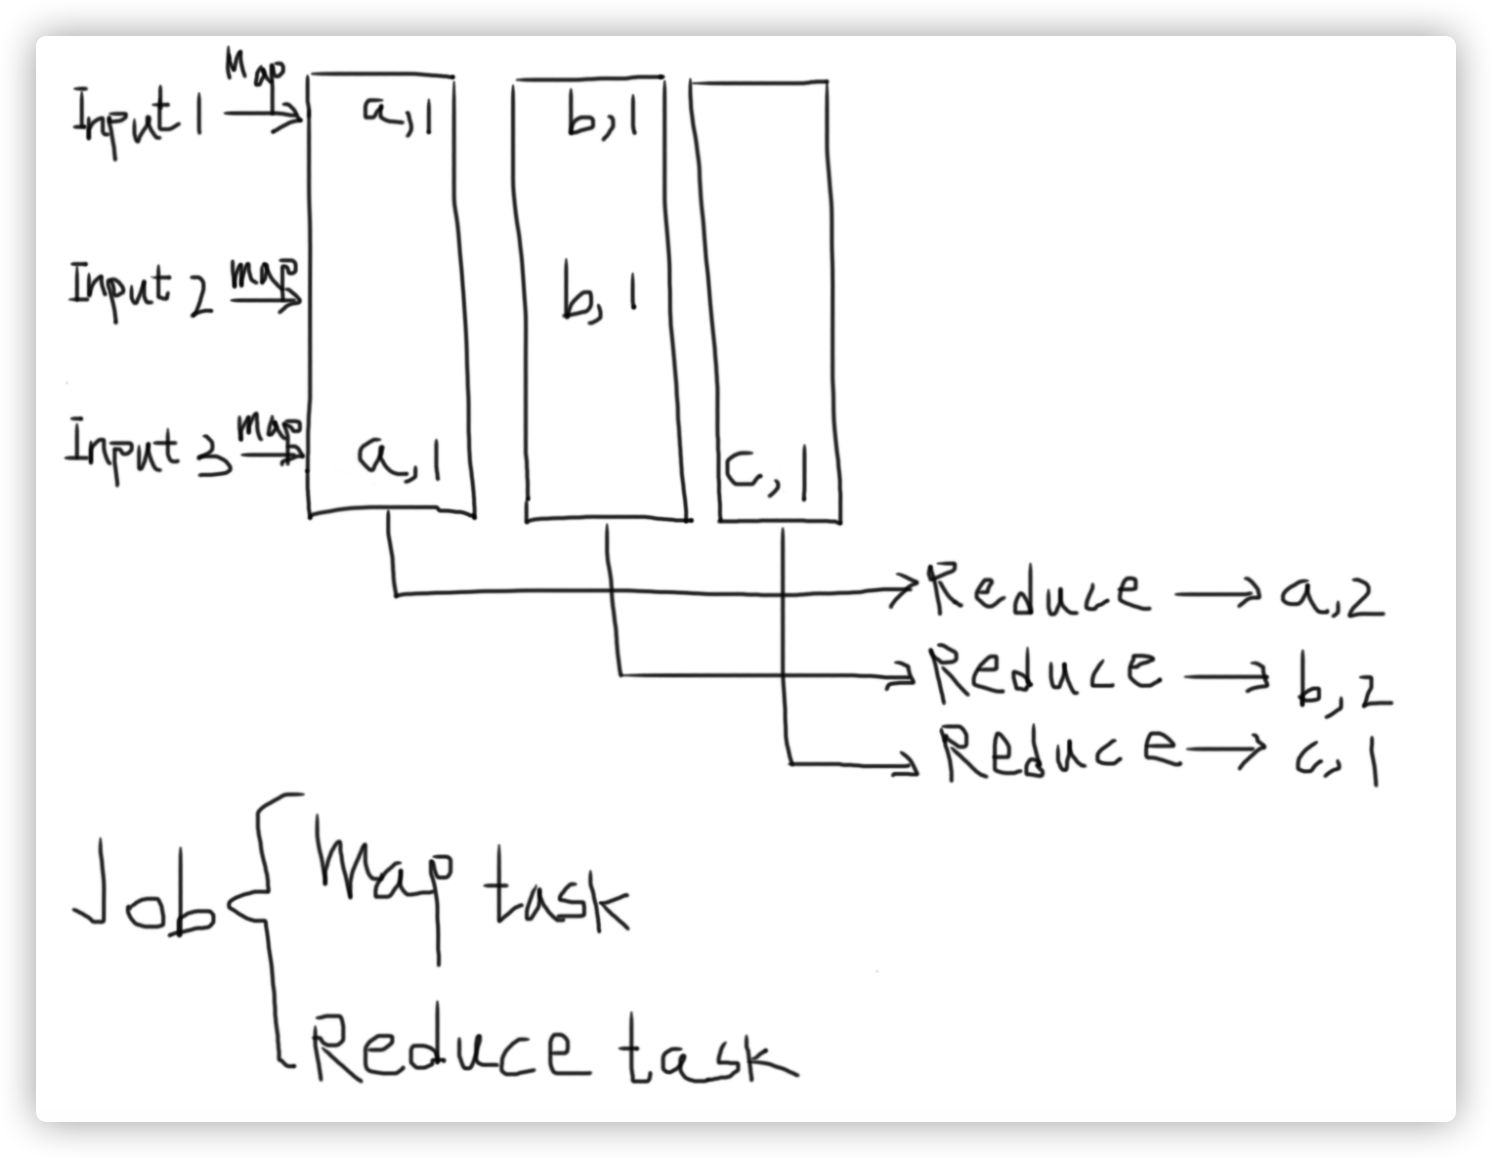 Input 1 Map a,1 b,1
Input 2 map b,1
Input 3 map a,1 c,1
Reduce → a,2
Reduce → b,2
Reduce → c,1
Job
Map task
Reduce task